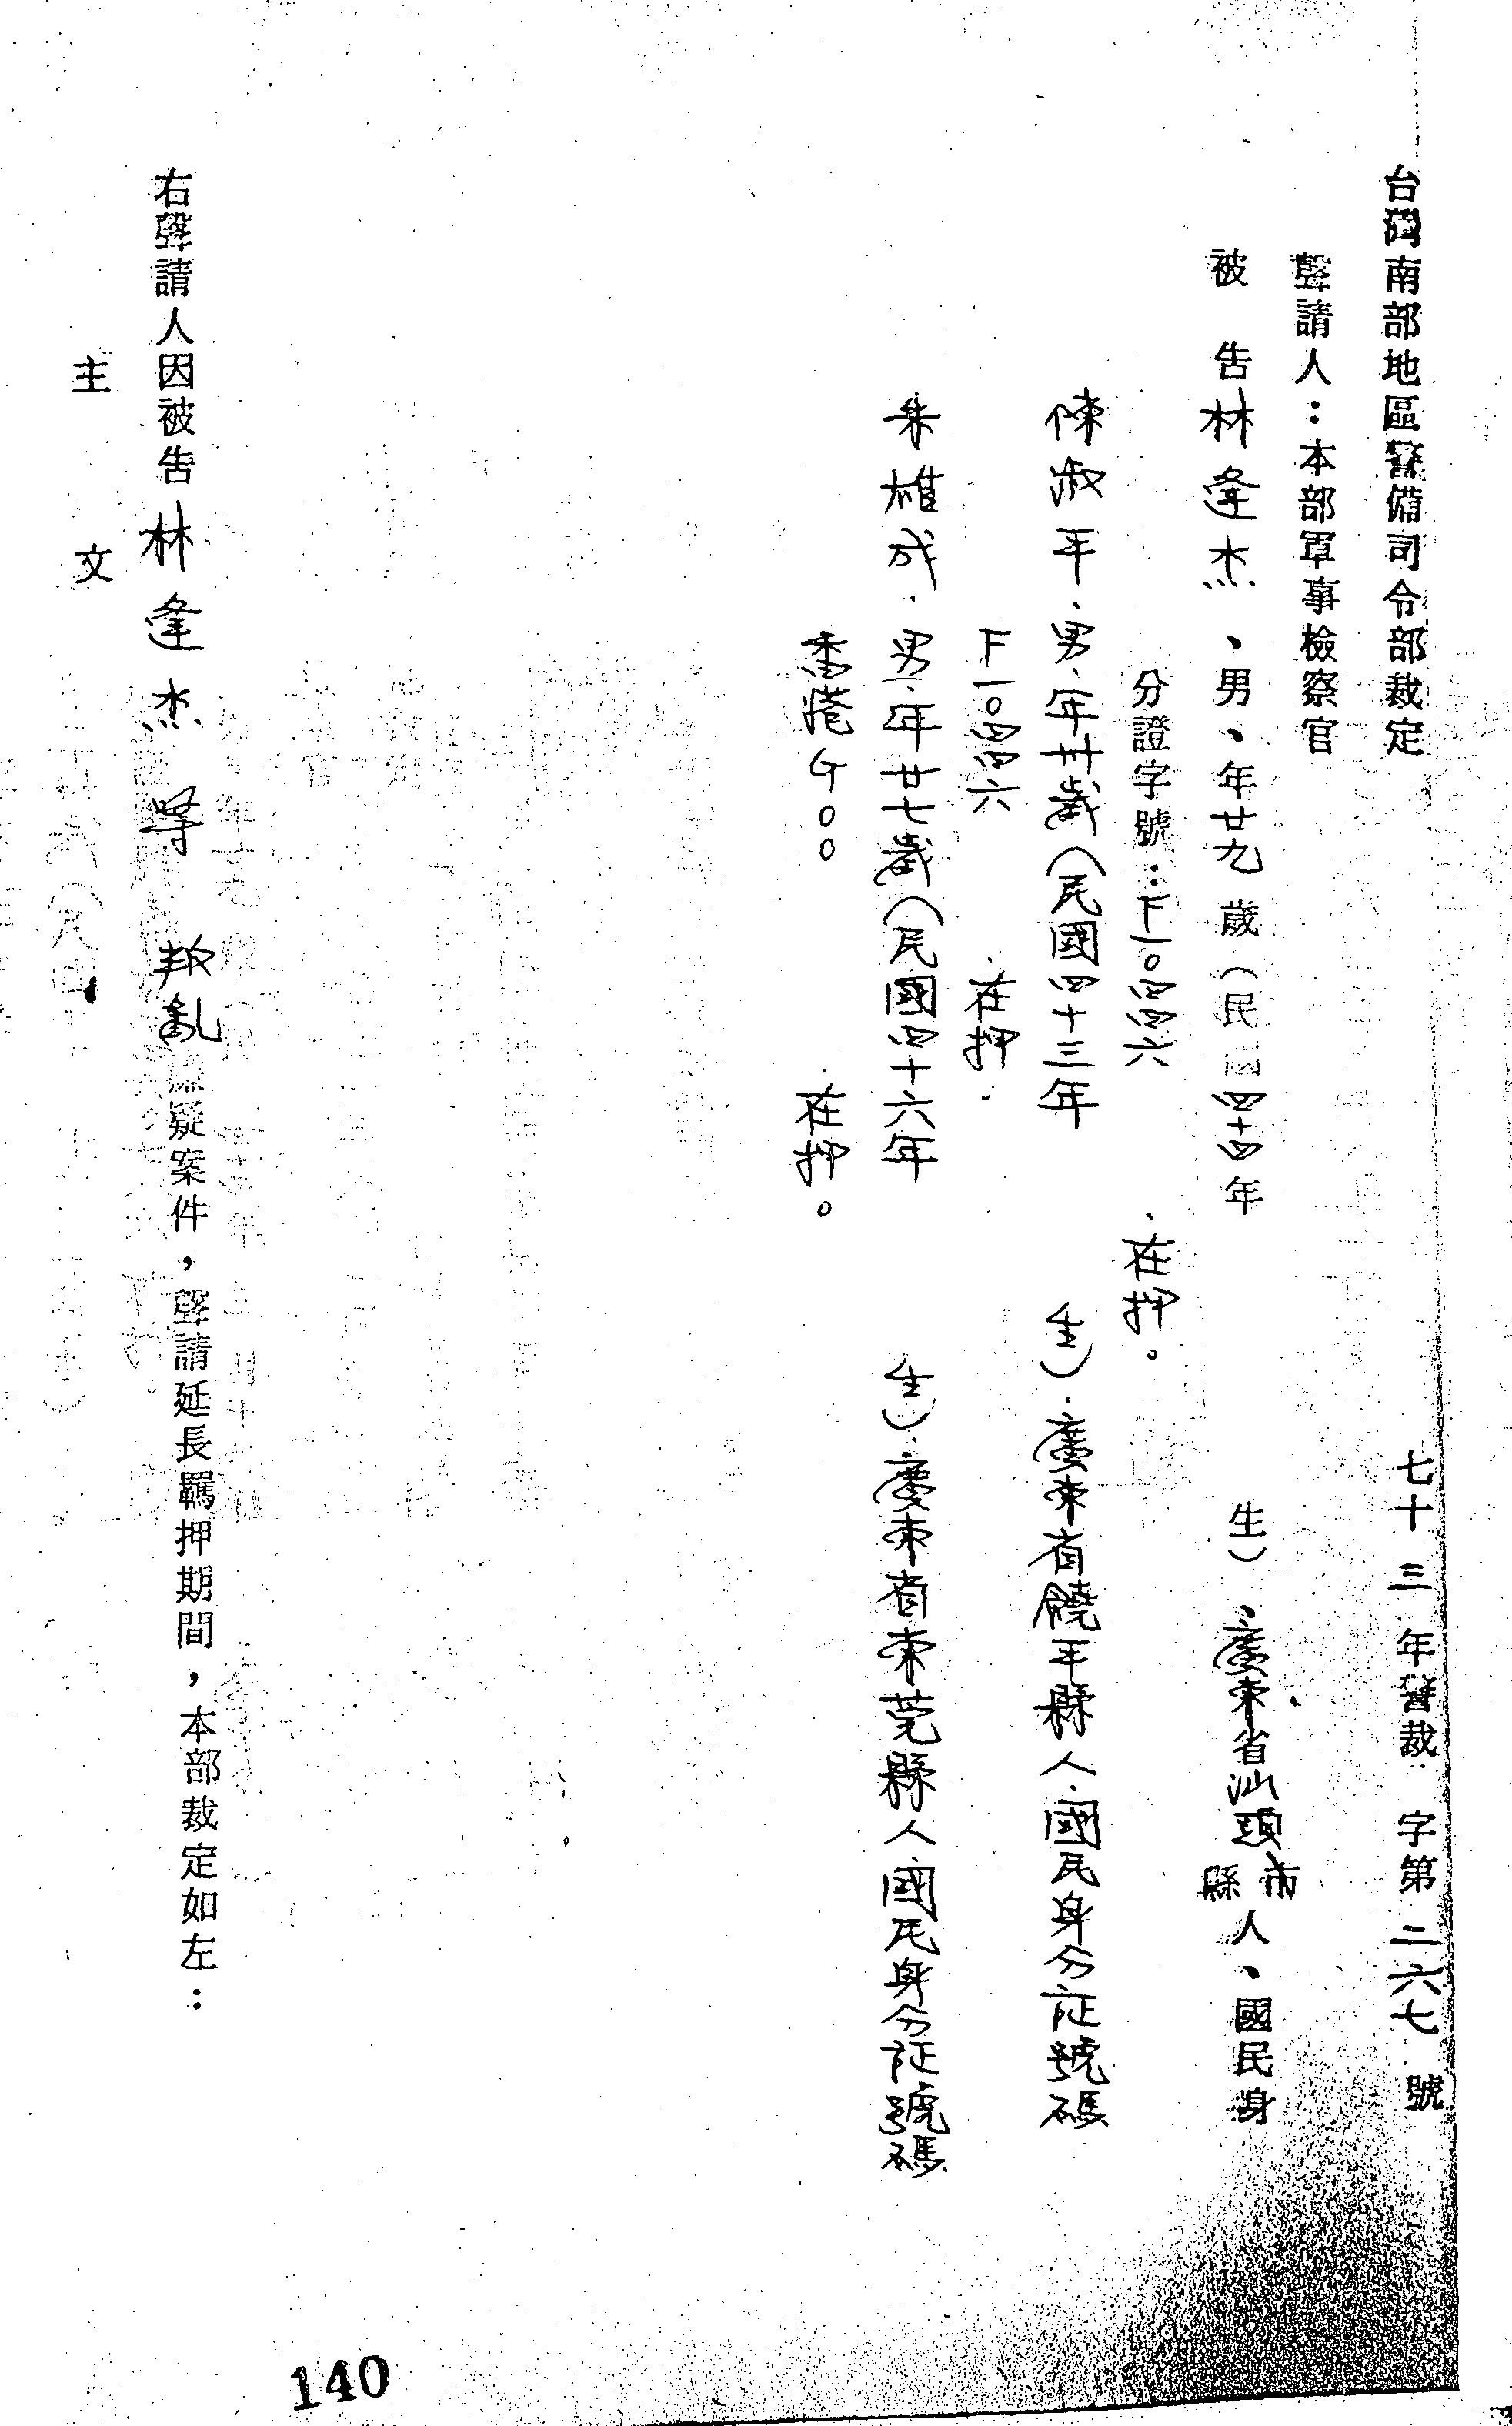 台灣南部地區警備司令部裁定 七十三年警裁字第二六七號
聲請人：本部軍事檢察官
被告林逢杰、男、年廿九歲（民國四十四年 生）、廣東省汕頭市縣人、國民身
分證字號：F一〇四四六 、在押。
陳淑平、男、年卅歲（民國四十三年 生）、廣東省饒平縣人、國民身分証號碼
F一〇四四六 、在押、
朱雄成、男、年廿七歲（民國四十六年 生）、廣東省東莞縣人國民身分証號碼
香港G〇〇 、在押。
右聲請人因被告林逢杰等叛亂嫌疑案件，聲請延長羈押期間，本部裁定如左：
主文
140